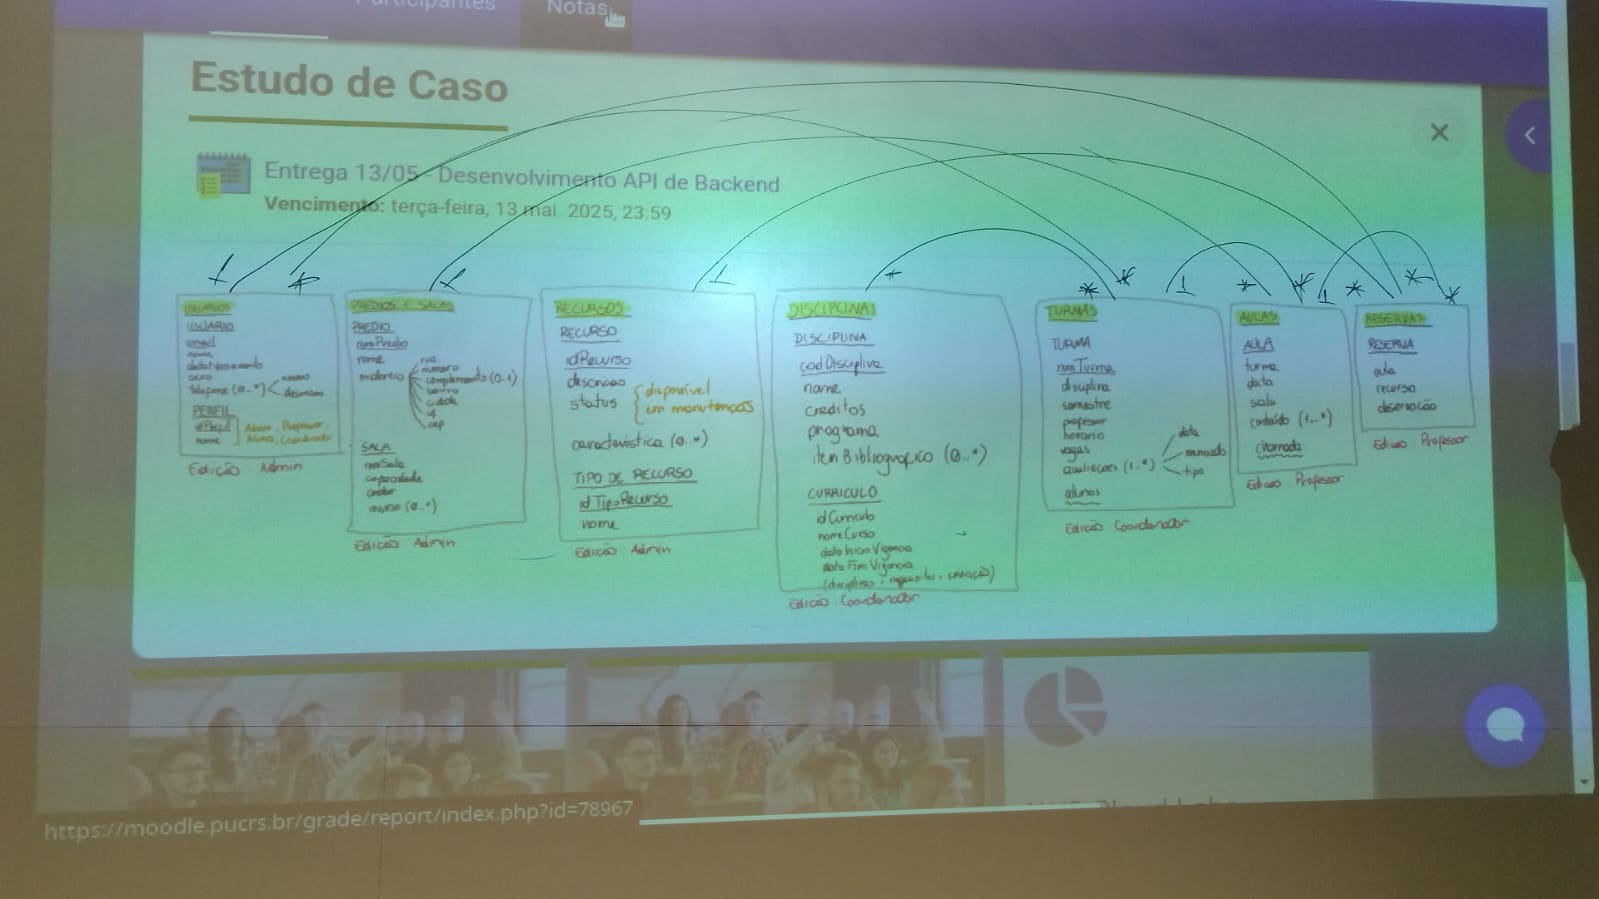 Participantes
Notas
Estudo de Caso
Entrega 13/05 - Desenvolvimento API de Backend
Vencimento: terça-feira, 13 mai. 2025, 23:59
1
*
1
1
*
*
*
1
*
*
1
*
*
*
USUARIOS
USUARIO
email
nome
dataNascimento
sexo
telefone (0..*)
numero
descricao
PERFIL
idPerfil
nome
Edição Admin
PREDIOS E SALAS
PREDIO
numPredio
nome
endereco
rua
numero
complemento (0..1)
bairro
cidade
uf
cep
SALA
numSala
capacidade
andar
recurso (0..*)
Edição Admin
RECURSOS
RECURSO
idRecurso
descricao
status
disponível
em manutenção
característica (0..*)
TIPO DE RECURSO
idTipoRecurso
nome
Edição Admin
DISCIPLINAS
DISCIPLINA
codDisciplina
nome
creditos
programa
itemBibliografico (0..*)
CURRICULO
idCurriculo
nomeCurso
dataInicioVigencia
dataFimVigencia
Edição Coordenador
TURMAS
TURMA
numTurma
disciplina
semestre
professor
horario
vagas
avaliacoes (1..*)
data
tipo
alunos
Edição Coordenador
AULAS
AULA
turma
data
sala
conteúdo (1..*)
chamada
Edicao Professor
RESERVAS
RESERVA
aula
recurso
observação
Edicao Professor
https://moodle.pucrs.br/grade/report/index.php?id=78967